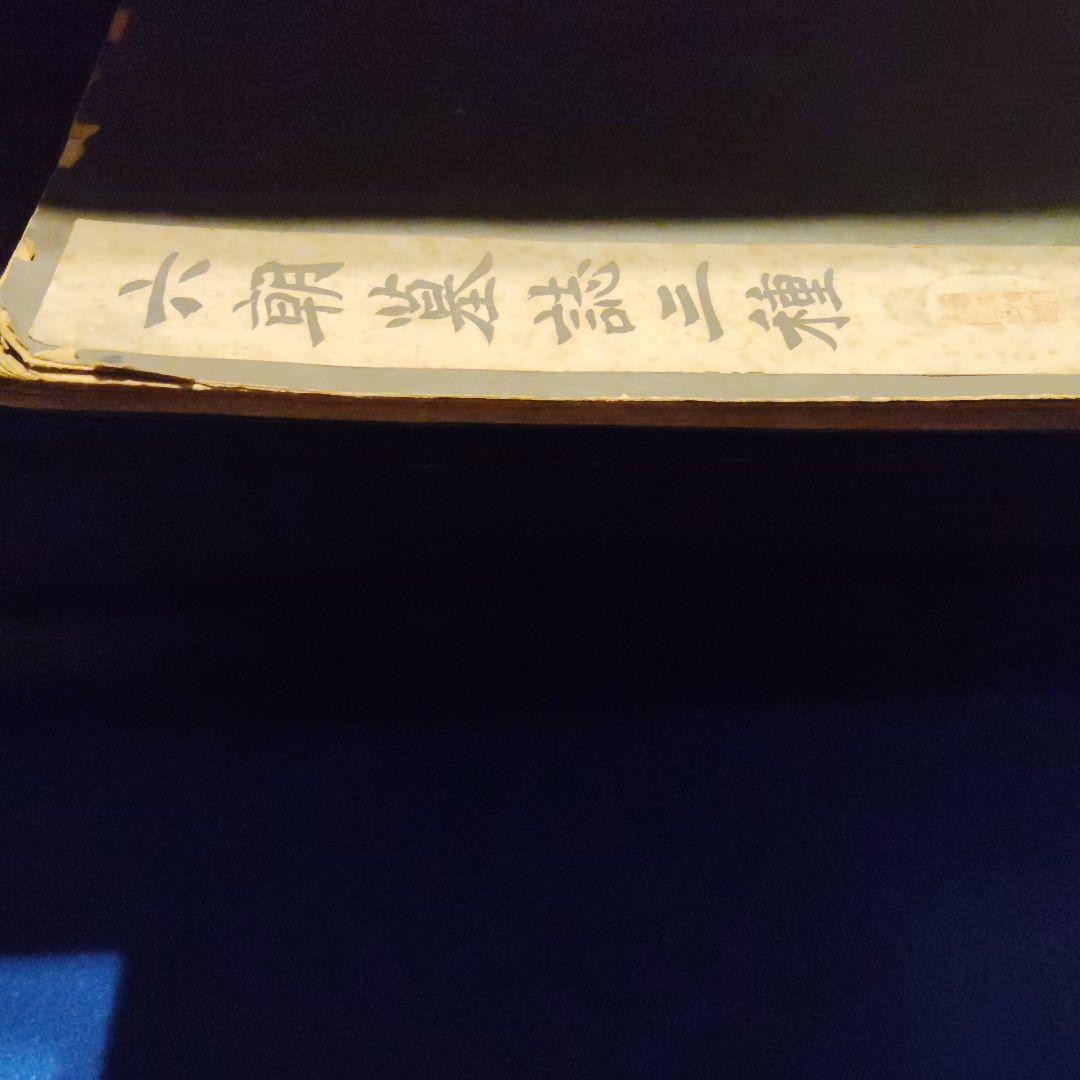 六朝墓誌三種